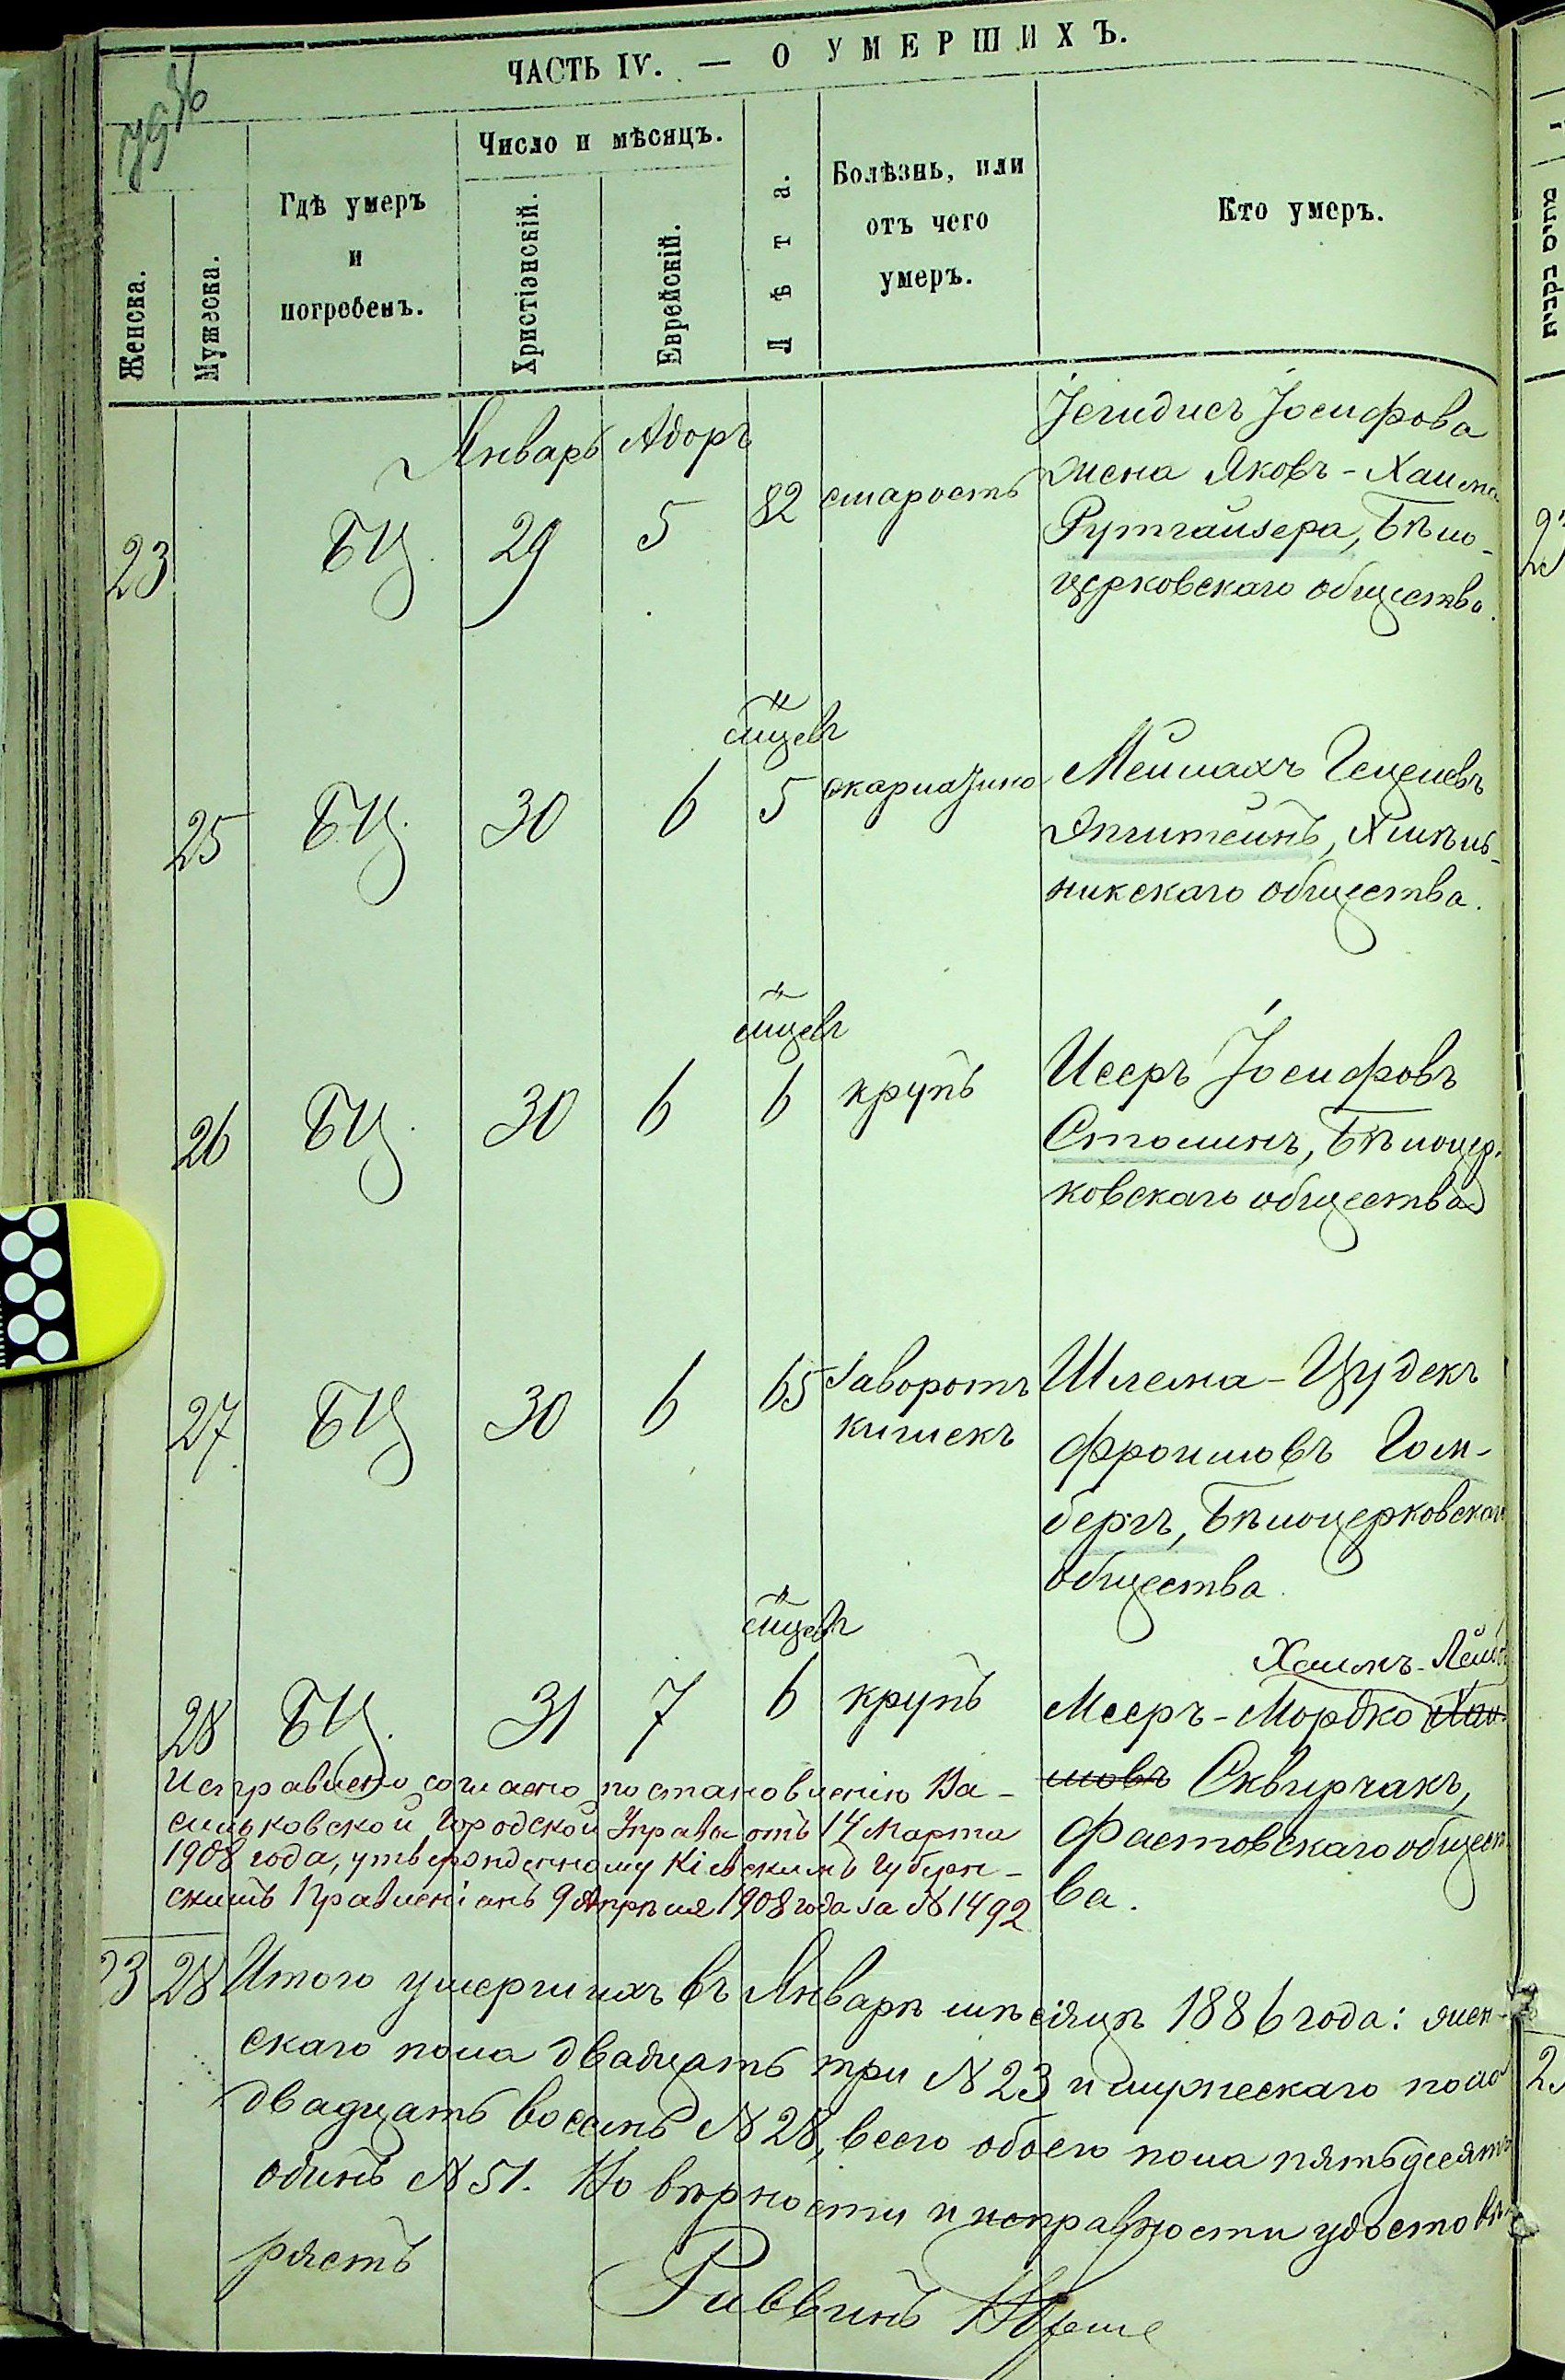 ЧАСТЬ IV. — О УМЕРШИХЪ.
Женска.
Мужеска.
Гдѣ умеръ
и
погребенъ.
Число и мѣсяцъ.
Христіанскій.
Еврейскій.
Лѣта.
Болѣзнь, или
отъ чего
умеръ.
Кто умеръ.
Январь Адоръ
23 БЦ. 29 5 82 старость
Іегидисъ Іосифова
жена Яковъ-Хаима
Рутгайзера, Бѣло-
церковскаго общества.
мцевъ
25 БЦ. 30 6 5 скарлатино
Мейлахъ Гецелевъ
Эпштейнъ, Хмѣль-
никскаго общества.
мцевъ
26 БЦ. 30 6 6 крупъ
Исеръ Іосифовъ
Столинъ, Бѣлоцер-
ковскаго общества
27 БЦ 30 6 65 заворотъ
кишекъ
Шлема-Цудекъ
Фроимовъ Гом-
бергъ, Бѣлоцерковскаго
общества.
мцевъ
28 БЦ. 31 7 6 крупъ
Хаимъ-Лейб
Мееръ-Мордко Хаи-
мовъ Сквирчакъ,
Фастовскаго общест-
ва.
Исправлено согласно постановленію Ва-
сильковской Городской Управы отъ 14 Марта
1908 года, утвержденному Кіевскимъ Губерн-
скимъ Правленіемъ 9 Апрѣля 1908 года за № 1492
23 28 Итого умершихъ въ Январѣ мѣсяцѣ 1886 года: жен-
скаго пола двадцать три № 23 и мужескаго пола
двадцать восемь № 28, всего обоего пола пятьдесятъ
одинъ № 51. По вѣрности и исправности удостовѣ-
ряетъ
Раввинъ